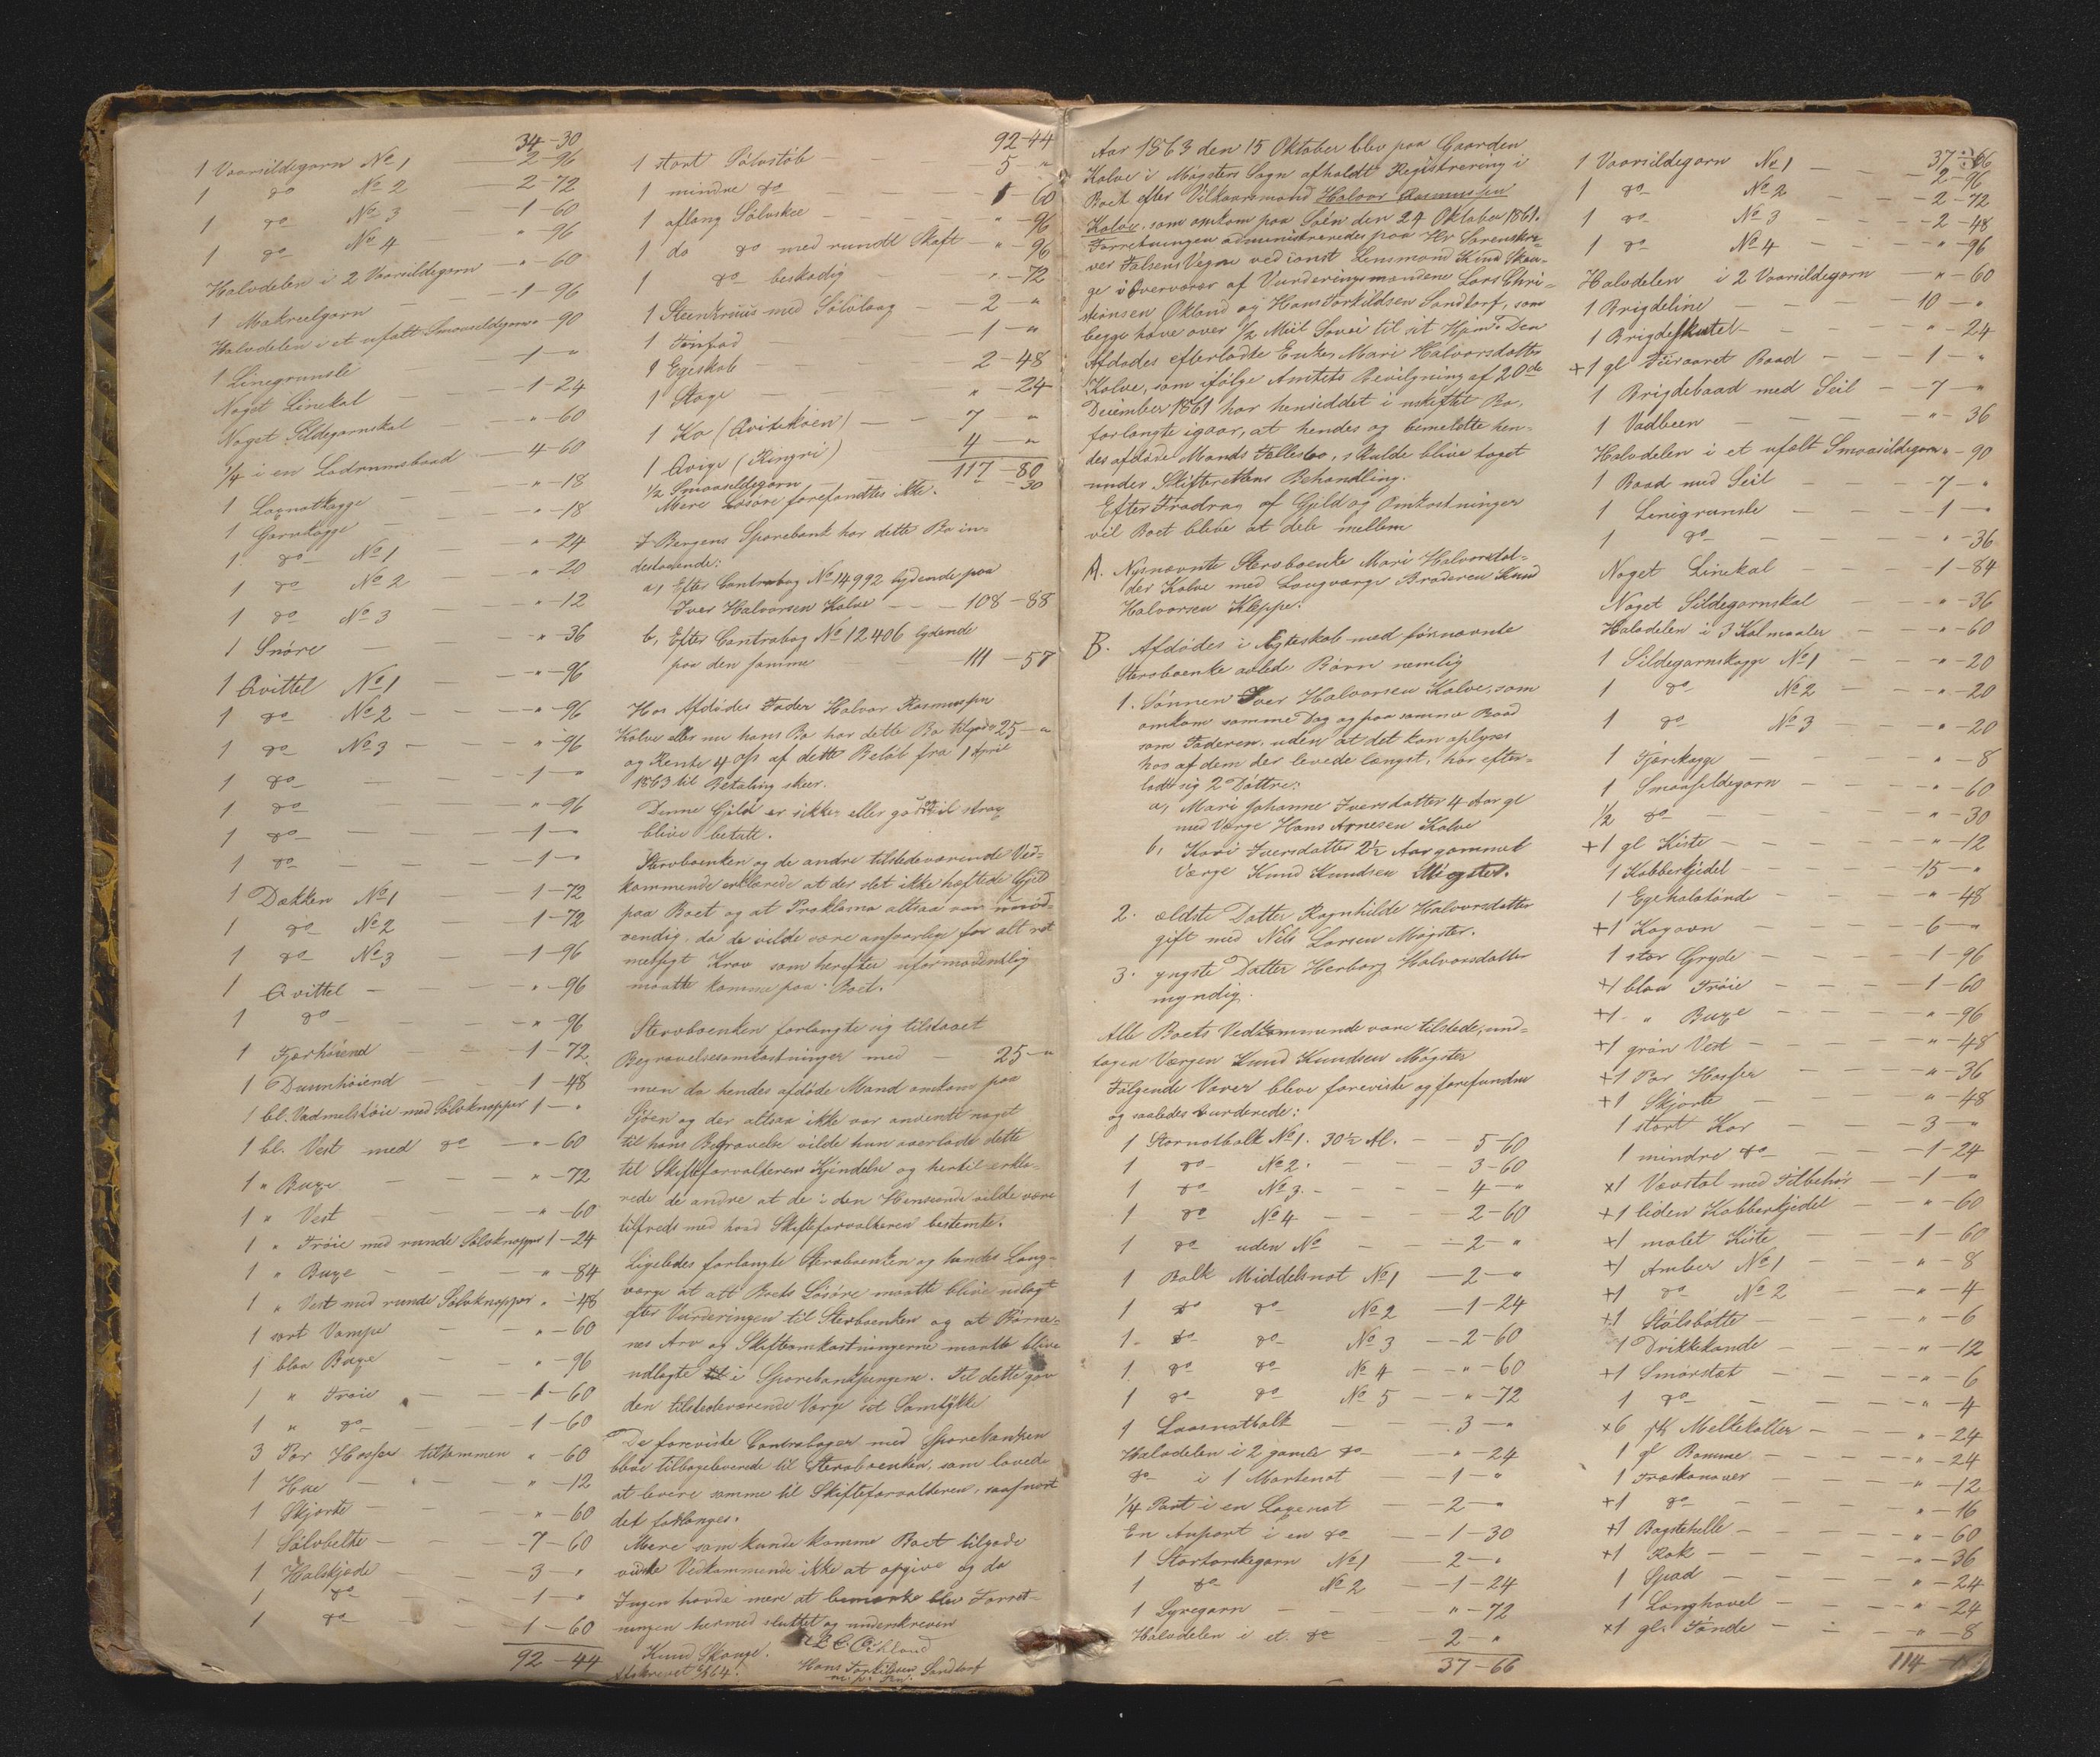 34-30
1 Vaarsildegarn No 1 — 2-96
1 do No 2 — 2-72
1 do No 3 — 1-60
1 do No 4 — " -96
Halvdelen i 2 Vaarsildegarn — " -60
1 Makrelgarn — 1-96
Halvdelen i et ufælt Smaasildegarn " -90
1 Linegrunsle — 1- "
Noget Linekal — 1-24
Noget Sildegarnskal — " -60
1/4 i en Ladrumsbaad — 4-60
1 Laxnotkagge — " -18
1 Garnkagge — " -18
1 do No 1 — " -24
1 do No 2 — " -20
1 do No 3 — " -12
1 Snøre — " -36
1 Qvittel No 1 — " -96
1 do No 2 — " -96
1 do No 3 — " -96
1 do — 1- "
1 do — " -96
1 do — 1- "
1 do — 1- "
1 Dækken No 1 — 1-72
1 do No 2 — 1-72
1 do No 3 — 1-96
1 Qvittel — " -96
1 do — " -96
1 Fjærhøiend — 1-72
1 Duunhøiend — 1-48
1 bl. Vadmelstrøie med Sølvknapper 1- "
1 bl. Vest med do — " -60
1 " Buxe — " -72
1 " Vest — " -60
1 " Trøie med runde Sølvknapper 1-24
1 " Buxe — " -84
1 " Vest med runde Sølvknapper " -48
1 sort Vampe — " -60
1 blaa Buxe — " -96
1 " Trøie — 1-60
1 " do — 1-60
3 Par Hoser tilsammen " -60
1 Hue — " -12
1 Skjorte — " -60
1 Sølvbelte — 7-60
1 Halskjæde — 3- "
1 do — 1- "
1 do — 1-60
92-44
92-44
1 stort Sølvstøb — 5- "
1 mindre do — 1-60
1 aflang Sølvskee — " -96
1 do do med rundt Skaft — " -96
1 do beskadig — " -72
1 Steenkruus med Sølvlaag — 2- "
1 Tinfad — 1- "
1 Egeskab — 2-48
1 Stage — " -24
1 Ko (Qvitekoen) — 7- "
1 Qvige (Ringri) 4- "
117-80
1/2 Smaasildegarn — " -30
Mere Løsøre forefandtes ikke.
I Bergens Sparebank har dette Bo in-
destaaende:
a, Efter Contrabog No 14992 lydende paa
Iver Halvorsen Kalve — 108-88
b, Efter Contrabog No 12406 lydende
paa den samme — 111-57
Hos Afdødes Fader Halvor Rasmussen
Kalve eller nu hans Bo har dette Bo tilgode 25- "
og Rente 4 % af dette Beløb fra 1 April
1863 til Betaling skeer.
Denne Gjæld er sikker eller god og vil strax
blive betalt.
Stervboenken og de andre tilstedeværende Ved-
kommende erklærede at der slet ikke hæftede Gjæld
paa Boet og at Proklama altsaa var unød-
vendig, da de vilde være ansvarlige for alt ret
mæssigt Krav som herefter uformodentlig
maatte komme paa Boet.
Stervboenken forlangte sig tilstaaet
Begravelsesomkostninger med — 25- "
men da hendes afdøde Mand omkom paa
Sjøen og der altsaa ikke var anvendt noget
til hans Begravelse vilde hun overlade dette
til Skifteforvalterens Kjendelse og hertil erklæ-
rede de andre at de i den Henseende vilde være
tilfreds med hvad Skifteforvalteren bestemte.
Ligeledes forlangte Stervboenken og hendes Laug-
værge at alt Boets Løsøre maatte blive udlagt
efter Vurderingen til Stervboenken og at Børne-
nes Arv og Skifteomkostningerne maatte blive
udlagte til i Sparebankpengene. Til dette gav
den tilstedeværende Værge sit Samtykke
De foreviste Contrabøger med Sparebanken
bleve tilbageleverede til Stervboenken, som lovede
at levere samme til Skifteforvalteren, saasnart
det forlanges.
Mere som kunde komme Boet tilgode
vidste Vedkommende ikke at opgive og da
Ingen havde mere at bemærke blev Forret-
ningen hermed sluttet og underskreven
Knud Skauge. L. C. Økland
Hans Torkildsen Sandtorf
m. p. Pen.
Afskrevet 64.
Aar 1863 den 15 Oktober blev paa Gaarden
Kalve i Møgsters Sogn afholdt Registrering i
Boet efter Vilkaarsmand Halvor Rasmussen
Kalve, som omkom paa Søen den 24 Oktober 1861.
Forretningen administreredes paa Hr Sorenskri-
ver Falsens Vegne ved const Lensmand Knud Skau-
ge i Overværer af Vurderingsmændene Lars Chri-
stiansen Økland og Hans Torkildsen Sandtorf, som
begge have over 1/2 Miil Søvei til sit Hjem. Den
Afdødes efterladte Enke Mari Halvorsdatter
Kalve, som ifølge Amtets Bevilgning af 20de
December 1861 har hensiddet i uskiftet Bo,
forlangte igaar, at hendes og bemeldte hen-
des afdøde Mands Fællesbo, skulde blive taget
under Skifterettens Behandling.
Efter Fradrag af Gjæld og Omkostninger
vil Boet blive at dele mellem
A. Nysnævnte Stervboenke Mari Halvorsdat-
der Kalve med Laugværge Broderen Knud
Halvorsen Kleppe.
B. Afdødes i Ægteskab med førnævnte
Stervboenke avlede Børn nemlig
1. Sønnen Iver Halvorsen Kalve, som
omkom samme Dag og paa samme Baad
som Faderen, uden at det kan oplyses
hvo af dem der levede længst, har efter-
ladt sig 2 Døttre:
a, Mari Johanne Iversdatter 4 Aar gl
med Værge Hans Arnesen Kalve
b, Kari Iversdatter 2 1/2 Aar gammel
Værge Knud Knudsen Møgster.
2. ældste Datter Ragnhilde Halvorsdatter
gift med Nils Larsen Møgster.
3. yngste Datter Herborg Halvorsdatter
myndig.
Alle Boets Vedkommende vare tilstede, und-
tagen Værgen Knud Knudsen Møgster
Følgende Varer bleve foreviste og forefundne
og saaledes vurderede:
1 Stornotbalk No 1. 30 1/2 Al. — 5-60
1 do No 2. — 3-60
1 do No 3. — 4- "
1 do No 4 — 2-60
1 do uden No — 2- "
1 Balk Middelsnot No 1 — 2- "
1 do do No 2 — 1-24
1 do do No 3 — 2-60
1 do do No 4 — " -60
1 do do No 5 — " -72
1 Laxenotbalk — 3- "
Halvdelen i 2 gamle do — " -24
do i 1 Mortenot — 1- "
1/4 Part i en Laxenot — 2- "
En Anpart i en do — 1-30
1 Stortorskegarn No 1 — 2- "
1 do No 2 — 1-24
1 Lyregarn — " -72
Halvdelen i et do — 2- "
37-66
37-66
1 Vaarsildegarn No 1 — 2-96
1 do No 2 — 2-72
1 do No 3 — 2-48
1 do No 4 — " -96
Halvdelen i 2 Vaarsildegarn — " -60
1 Brigdeline — 10- "
1 Brigdeskutel — " -24
+1 gl Fiiraaret Baad — 1- "
1 Brigdebaad med Seil — 7- "
1 Vadbeen — " -36
Halvdelen i et ufælt Smaasildegarn " -90
1 Baad med Seil — 7- "
1 Linegrunsle — 1- "
1 do — " -36
Noget Linekal — 1-84
Noget Sildegarnskal — " -36
Halvdelen i 3 Kolmaaler — " -60
1 Sildegarnskagge No 1 — " -20
1 do No 2 — " -20
1 do No 3 — " -20
1 Tjærekagge — " -8
1 Smaasildegarn — " -60
1/2 do — " -30
+1 gl Kiste — " -12
1 Kobberkjedel — 15- "
1 Egehalvtønde — " -48
+1 Kagovn — 6- "
1 stor Gryde — 1-96
+1 blaa Trøie — 1-60
+1 " Buxe — " -96
+1 grøn Vest — " -48
+1 Par Hoser — " -36
+1 Skjorte — " -48
1 stort Kar — 3- "
1 mindre do — 1-24
+1 Vævstol med Tilbehør — 1- "
+1 liden Kobberkjedel — " -60
+1 malet Kiste — 1-60
+1 Amber No 1 — " -8
+1 do No 2 — " -4
+1 Stølsbøtte — " -6
1 Drikkekande — " -12
+1 Smørstat — " -6
1 do — " -4
+6 stk Melkekoller — " -24
1 gl Bomme — " -24
1 — " -12
+1 do — " -16
+1 Bagstehelle — " -60
+1 Rok — " -36
1 Spad — " -24
1 Langhøvel — " -24
+1 gl. Tønde — " -8
114